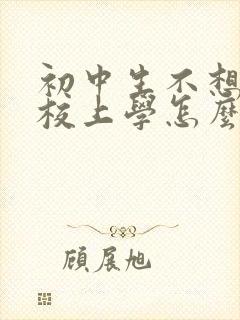 初中生不想
校上學怎麼
顧展旭